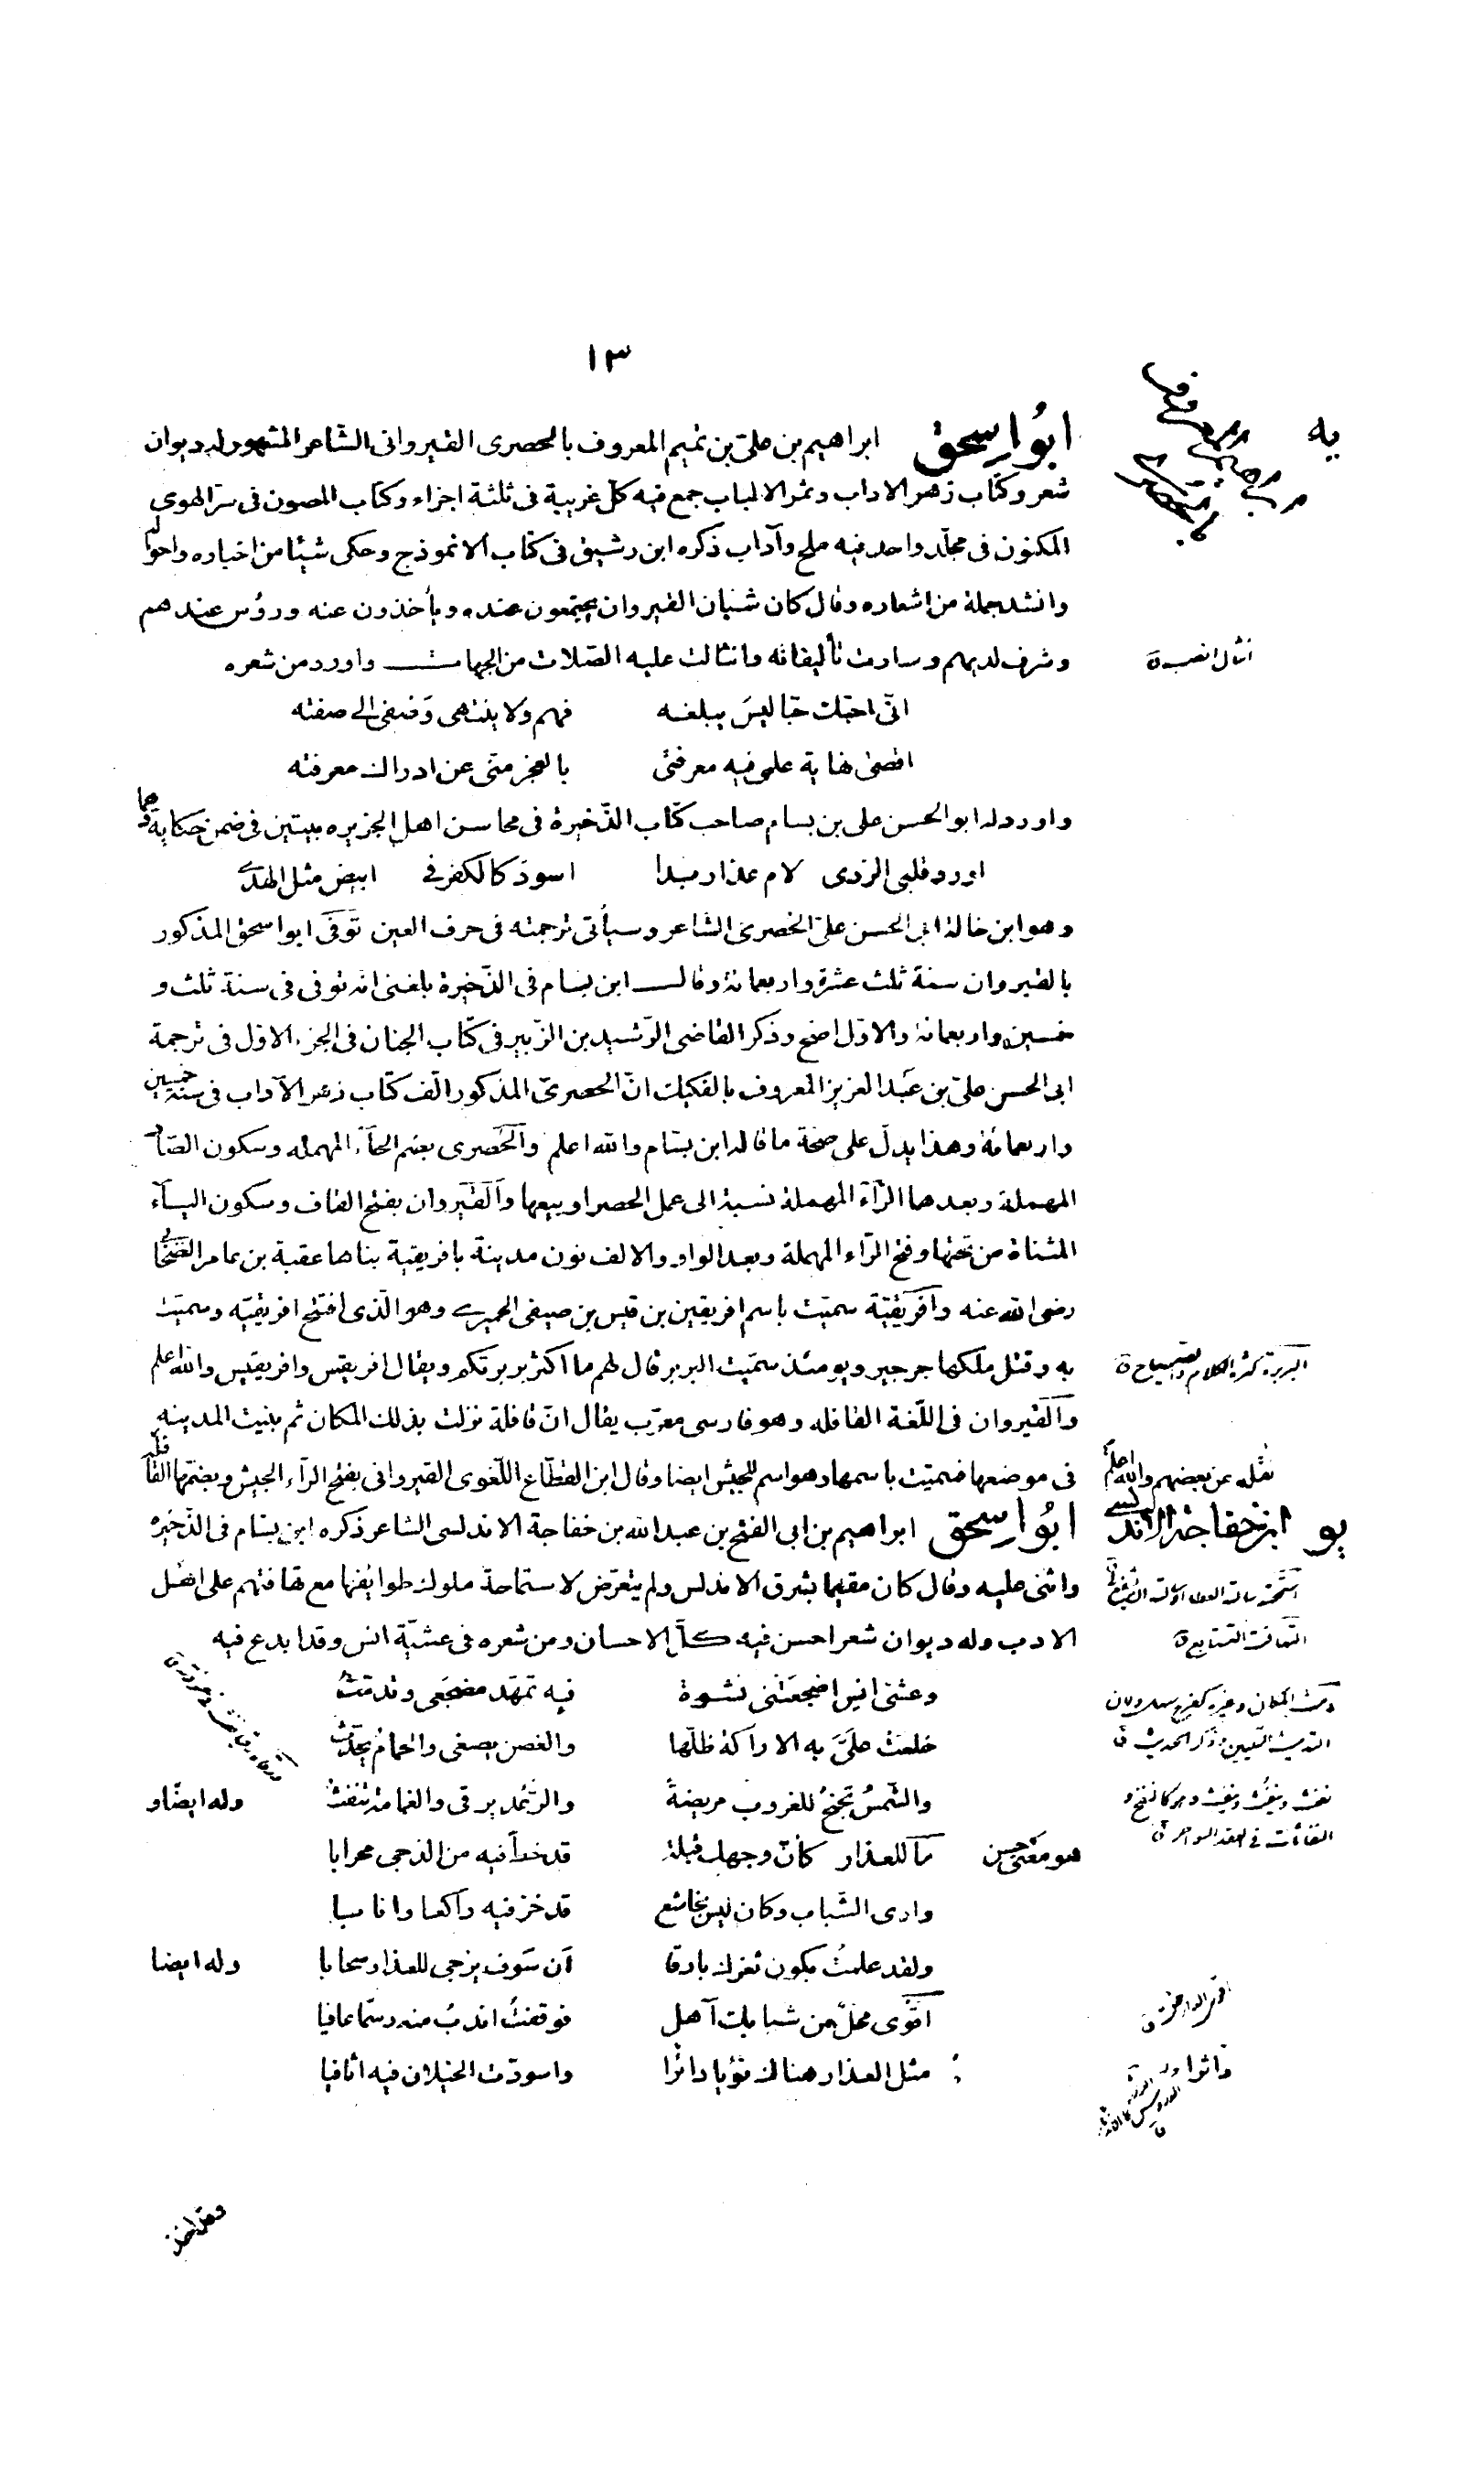 ١٣
يه
ابُو اسحق ابراهيم بن على بن تميم المعروف بالحصرى القيروانى الشّاعر المشهور له ديوان
شعر وكتاب زهر الاداب وثمر الالباب جمع فيه كلّ غريبة فى ثلثة اجزاء وكتاب المصون فى سرّ الهوى
المكنون فى مجلّد واحد فيه ملح وآداب ذكره ابن رشيق فى كتاب الانموذج وحكى شيئا من اخباره واحواله
وانشد جملة من اشعاره وقال كان شبان القيروان يجتمعون عنده ويأخذون عنه ورؤس عندهم
وشرف لديهم وسارت تأليفاته وانثالت عليه الصّلات من الجهات واورد من شعره
انثال انصب
انّى احبّك حبّا ليسَ يبلغه فهم ولا ينتهى وَصفى الى صفته
اقصى نهاية علمى فيه معرفتى بالعجز منّى عن ادراك معرفته
واورد له ابو الحسن على بن بسام صاحب كتاب الذّخيرة فى محاسن اهل الجزيره بيتين فى ضمن حكاية وهما
اورد قلبى الردى لام عذار بدا اسود كالكفر فى ابيض مثل الهدى
وهو ابن خالة ابى الحسن علىّ الحصرى الشاعر وسيأتى ترجمته فى حرف العين تَوَفى ابو اسحق المذكور
بالقيروان سنة ثلث عشرة واربعمائة وقال ابن بسام فى الذّخيرة بلغنى انه توفى فى سنة ثلث و
خمسين واربعمائة والاوّل اصحّ وذكر القاضى الرّشيد بن الزّبير فى كتاب الجنان فى الجزء الاوّل فى ترجمة
ابى الحسن علىّ بن عَبد العزيز المعروف بالفكيك انّ الحصرىّ المذكور الّف كتاب زهر الآداب فى سنة خمسين
واربعمائة وهذا يدلّ على صحّة ما قاله ابن بسّام والله اعلم والحُصرى بضم الحآء المهمله وسكون الصّاد
المهملة وبعدها الرّآء المهملة نسبة الى عمل الحصر او بيعها والقَيروان بفتح القاف وسكون اليـآء
المثناة من تحتها وفتح الرّاء المهملة وبعد الواو والالف نون مدينة بافريقية بناها عقبة بن عامر الصّحابى
رضى الله عنه وافريقيّة سمّيت باسم افريقين بن قيس بن صيفى الحميرى وهو الّذى افتتح افريقيّه وسمّيت
به وقتل ملكها جرجير ويومئذ سمّيت البربر قال لهم ما اكثر بربرتكم ويقال افريقس وافريقيس والله اعلم
البربرة كثرة الكلام والصياح
والقيروان فى اللّغة القافله وهو فارسى معرّب يقال انّ قافلة نزلت بذلك المكان ثم بنيت المدينه
فى موضعها فسميّت باسمها وهو اسم للجيش ايضا وقال ابن القطّاع اللّغوى القيروانى بفتح الرآء الجيش وبضمّها القافلة
نقله عن بعضهم والله اعلم
يو ابن خفاجة الاندلسى
ابُو اسحق ابراهيم بن ابى الفتح بن عبد الله بن خفاجة الاندلسى الشاعر ذكره ابن بسّام فى الذّخيرة
واثنى عليه وقال كان مقيما بشرق الاندلس ولم يتعرّض لاستماحة ملوك طوايفها مع تهافتهم على اهل
الادب وله ديوان شعر احسن فيه كلّ الاحسان ومن شعره فى عشيّة انس وقد ابدع فيه
التهافت التتابع
وعشىّ انس اضجعَتنى نشوة فيه تمهّد مضجعى وتدمّث
خلعَت علىَّ به الاراكة ظلّها والغصن يصغى والحمام يحدّث
والشّمسُ تجنحُ للغروب مريضةً والرّعد يرقى والغمامة تنفث وله ايضًا و
هو معنى حسن
ما للعذار كأنّ وجهك قبلة قد خط فيه من الدجى محرابا
وارى الشّباب وكان ليس بخاشع قد خرّ فيه راكعا وانابا
ولقد علمتُ بكون ثغرك بارقا اَن سَوف يزجى للعذار سحابا وله ايضا
اقوى محلّ من شبابك آهل فوقفتُ اندبُ منه رسمًا عافيا
مثل العذار هناك نؤيا داثرا واسودّت الخيلان فيه اثافيا
وقد اخذ